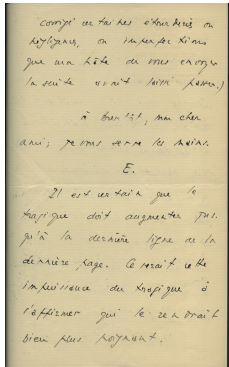 corrigé certaines étourderies ou
négligences, ou imperfections
que ma hâte de vous envoyer
la suite avait laissé passer.)
à bientôt, mon cher
ami; je vous serre les mains.
E.
Il est certain que le
tragique doit augmenter jus-
qu'à la dernière ligne de la
dernière page. Ce serait cette
impuissance du tragique à
s'affirmer qui le rendrait
bien plus poignant.